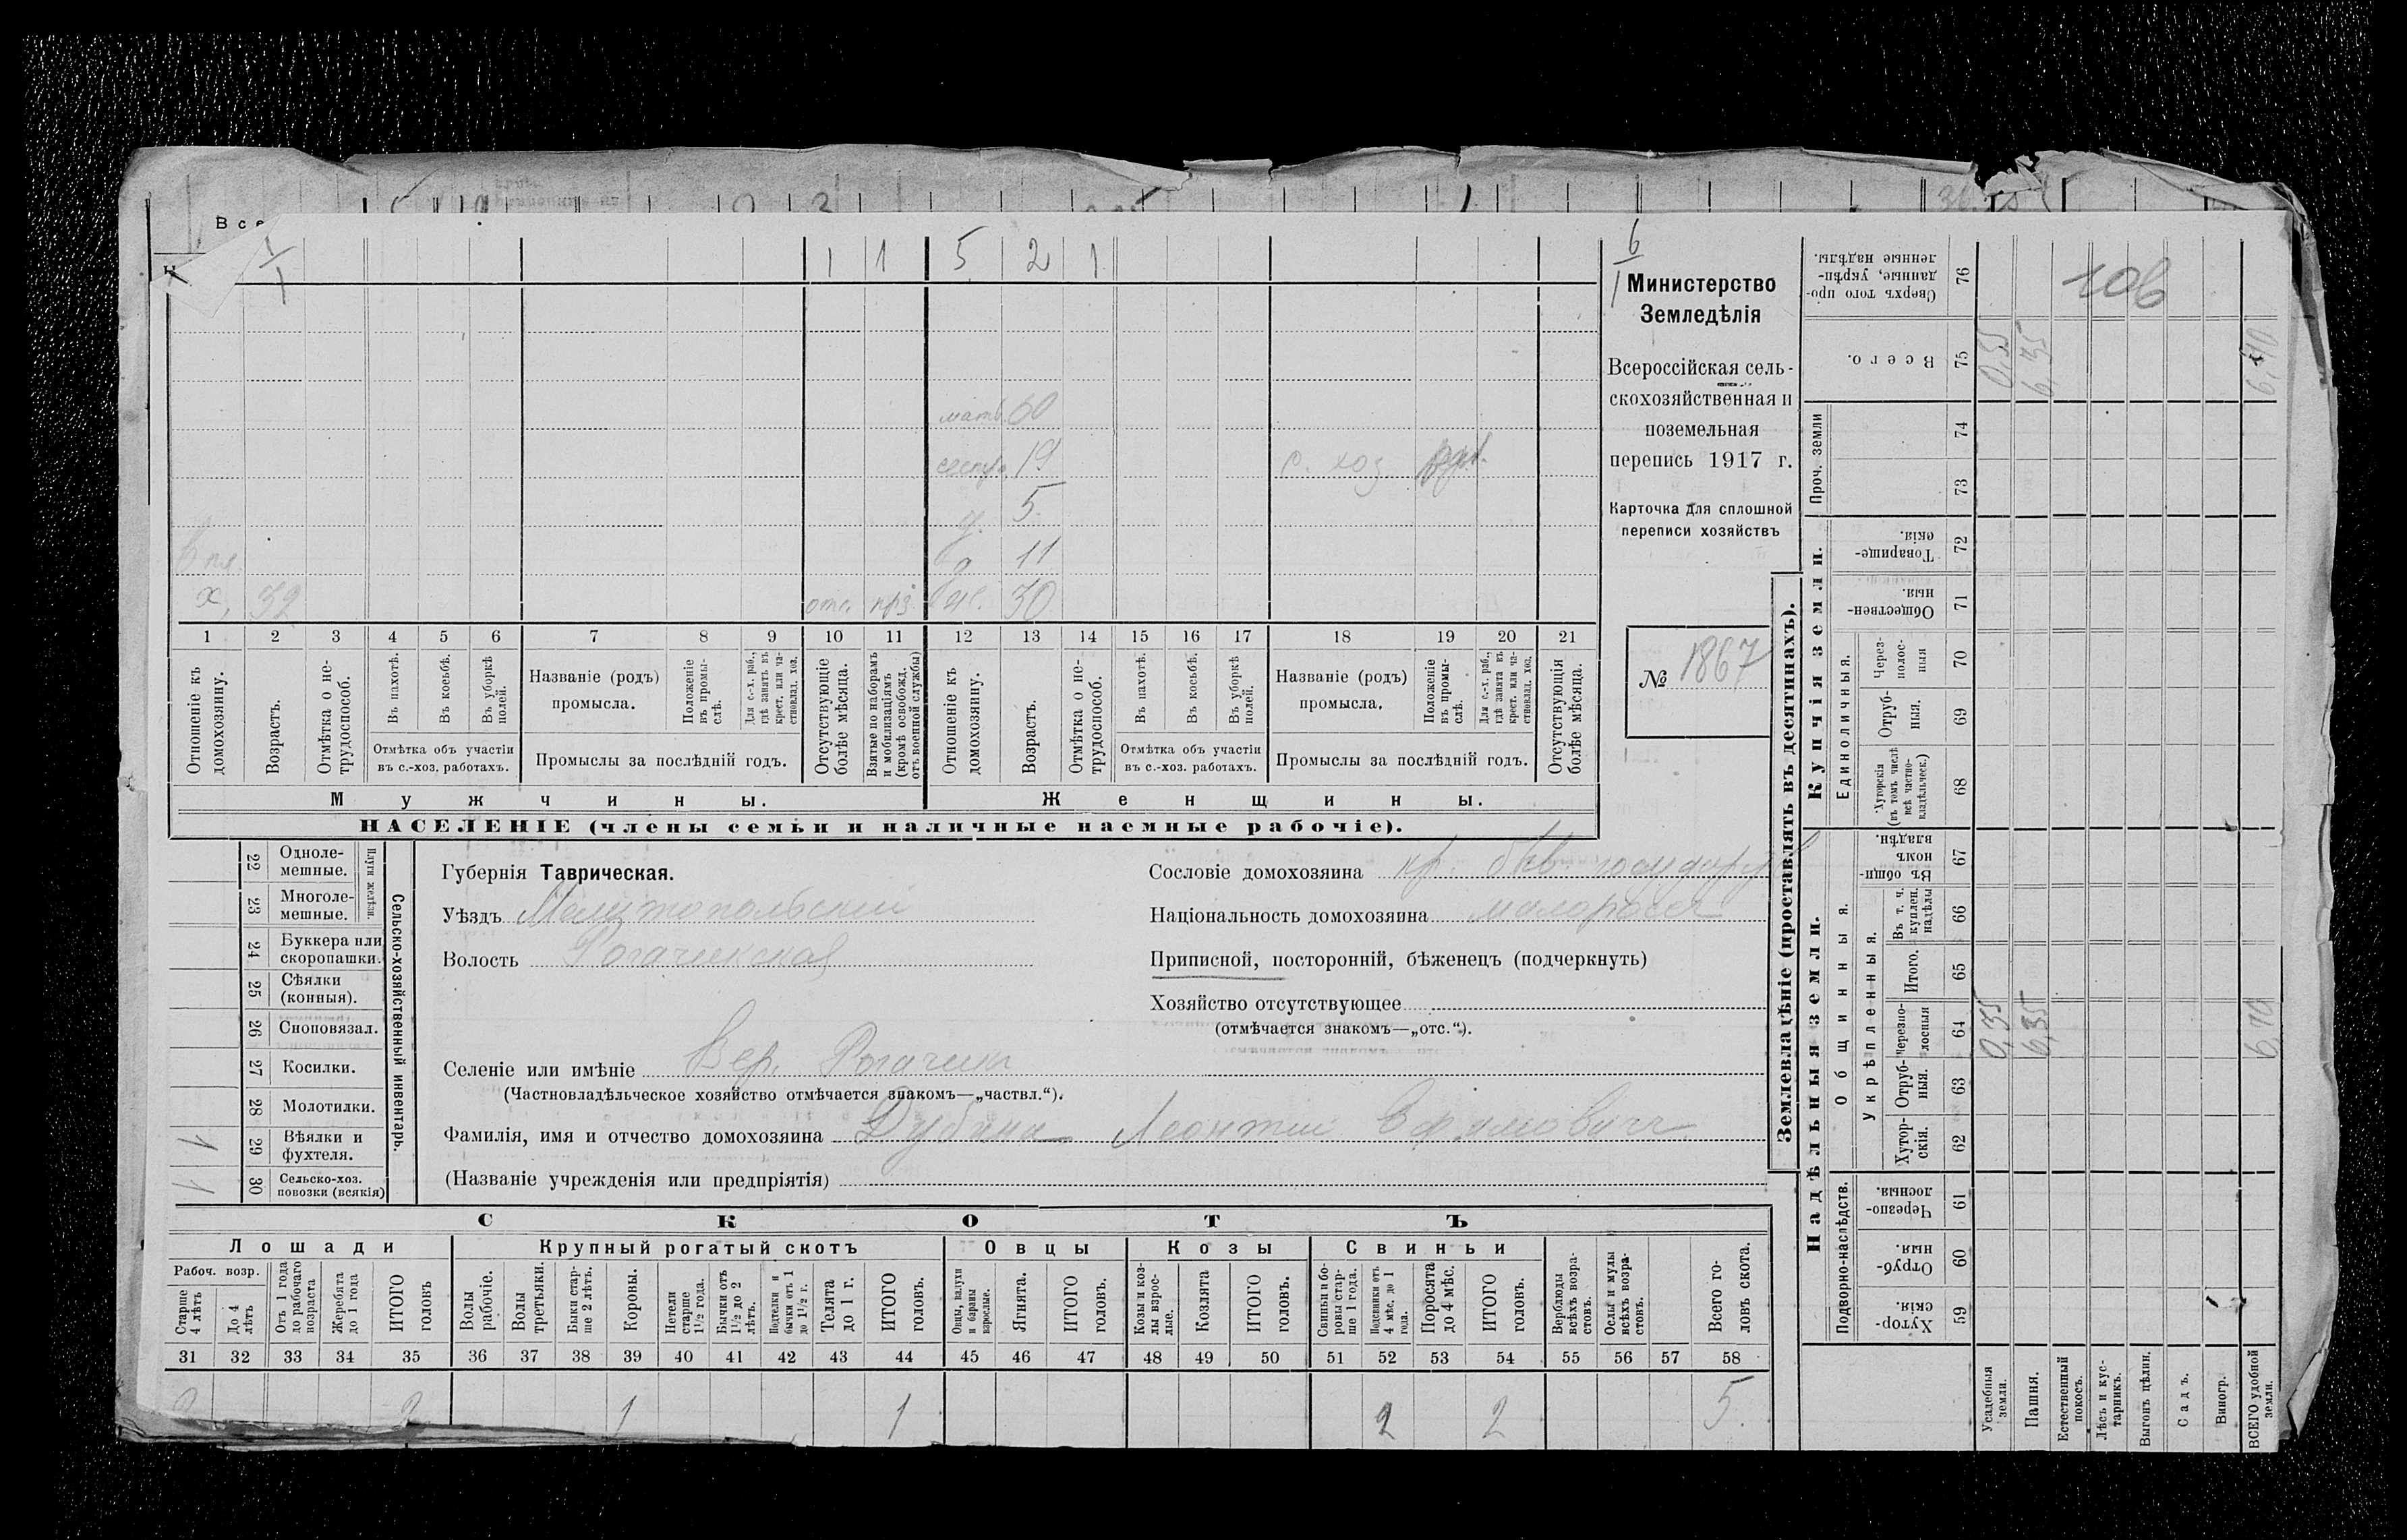 Все
1/1
1 1 5 2 1
6/1
Министерство
Земледѣлія
Всероссійская сель-
скохозяйственная и
поземельная
перепись 1917 г.
Карточка для сплошной
переписи хозяйствъ
№ 1867
мать 60
сестра 19 с. хоз.
5
11
х. 32 отс. 30
1 2 3 4 5 6 7 8 9 10 11 12 13 14 15 16 17 18 19 20 21
Отношеніе къ домохозяину.
Возрастъ.
Отмѣтка о не-трудоспособ.
Въ пахотѣ.
Въ косьбѣ.
Въ уборкѣ полей.
Отмѣтка объ участіи
въ с.-хоз. работахъ.
Названіе (родъ)
промысла.
Положеніе въ промы-слѣ.
Для с.-х. раб., гдѣ занятъ въ крест. или ча-стновлад. хоз.
Промыслы за послѣдній годъ.
Отсутствующіе болѣе мѣсяца.
Взятые по наборамъ и мобилизаціямъ (кромѣ освобожд. отъ военной службы)
Отношеніе къ домохозяину.
Возрастъ.
Отмѣтка о не-трудоспособ.
Въ пахотѣ.
Въ косьбѣ.
Въ уборкѣ полей.
Отмѣтка объ участіи
въ с.-хоз. работахъ.
Названіе (родъ)
промысла.
Положеніе въ промы-слѣ.
Для с.-х. раб., гдѣ занята въ крест. или ча-стновлад. хоз.
Промыслы за послѣдній годъ.
Отсутствующія болѣе мѣсяца.
Мужчины. Женщины.
НАСЕЛЕНІЕ (члены семьи и наличные наемные рабочіе).
22 Одноле-мешные.
23 Многоле-мешные.
Плуги желѣзн.
24 Буккера или скоропашки.
25 Сѣялки (конныя).
26 Сноповязал.
27 Косилки.
28 Молотилки.
29 Вѣялки и фухтеля. 1
30 Сельско-хоз. повозки (всякія) 1
Сельско-хозяйственный инвентарь.
Губернія Таврическая.
Уѣздъ Мелитопольскій
Волость Рогачикская
Сословіе домохозяина кр. быв. государ.
Національность домохозяина малороссъ
Приписной, посторонній, бѣженецъ (подчеркнуть)
Хозяйство отсутствующее
(отмѣчается знакомъ—„отс.“).
Селеніе или имѣніе Вер. Рогачикъ
(Частновладѣльческое хозяйство отмѣчается знакомъ—„частвл.“).
Фамилія, имя и отчество домохозяина Дубина Леонтій Ефимовичъ
(Названіе учрежденія или предпріятія)
СКОТЪ
Лошади Крупный рогатый скотъ Овцы Козы Свиньи
Рабоч. возр.
Старше 4 лѣтъ
До 4 лѣтъ
Отъ 1 года до рабочаго возраста
Жеребята до 1 года
ИТОГО головъ
Волы рабочіе.
Волы третьяки.
Быки стар-ше 2 лѣтъ.
Коровы.
Нетели старше 1½ года.
Бычки отъ 1½ до 2 лѣтъ.
Подтелки и бычки отъ 1 до 1½ г.
Телята до 1 г.
ИТОГО головъ.
Овцы, валухи и бараны взрослые.
Ягнята.
ИТОГО головъ.
Козы и коз-лы взрос-лые.
Козлята
ИТОГО головъ.
Свиньи и бо-ровы стар-ше 1 года.
Подсвинки отъ 4 мѣс. до 1 года.
Поросята до 4 мѣс.
ИТОГО головъ.
Верблюды всѣхъ возра-стовъ.
Ослы и мулы всѣхъ возра-стовъ.
Всего го-ловъ скота.
31 32 33 34 35 36 37 38 39 40 41 42 43 44 45 46 47 48 49 50 51 52 53 54 55 56 57 58
2 2 1 1 2 2 5
Землевладѣніе (проставлять въ десятинахъ).
Купчія земли.
Надѣльныя земли.
Сверхъ того про-данные, укрѣп-ленные надѣлы. 76 106
Всего. 75 0,35 6,35 6,70
Проч. земли 74
73
Товарище-скія. 72
Обществен-ныя. 71
Единоличныя.
Через-полос-ныя 70
Отруб-ныя. 69
Хуторскія (въ томъ числѣ всѣ частно-владѣльческ.) 68
Общинныя.
Въ общи-номъ владѣн. 67
Укрѣпленныя.
Въ т. ч. куплен. надѣлы 66
Итого. 65
Черезпо-лосныя 64 0,35 6,35 6,70
Отруб-ныя. 63
Хутор-скія. 62
Подворно-наслѣдств.
Черезпо-лосныя. 61
Отруб-ныя. 60
Хутор-скія. 59
Усадебныя земли.
Пашня.
Естественный покосъ.
Лѣсъ и кус-тарникъ.
Выгонъ цѣлин.
Садъ.
Виногр.
ВСЕГО удобной земли.